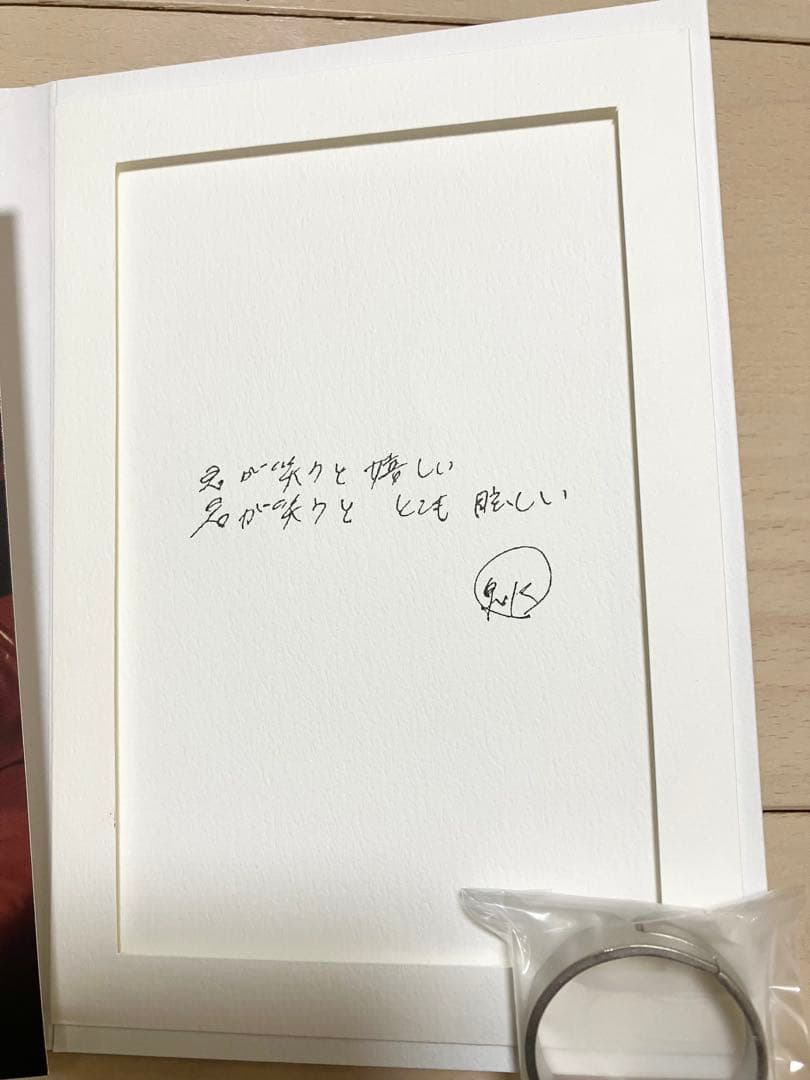 君が笑うと嬉しい
君が笑うと とても 眩しい